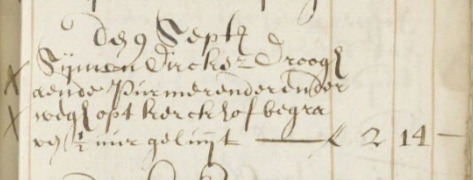 den 9 Septb
Sijmen Dircksz Droogh
aende Purmerender ender
wegh opt kerckhof begra
ven ½ uur geluijt — f 2 14 —